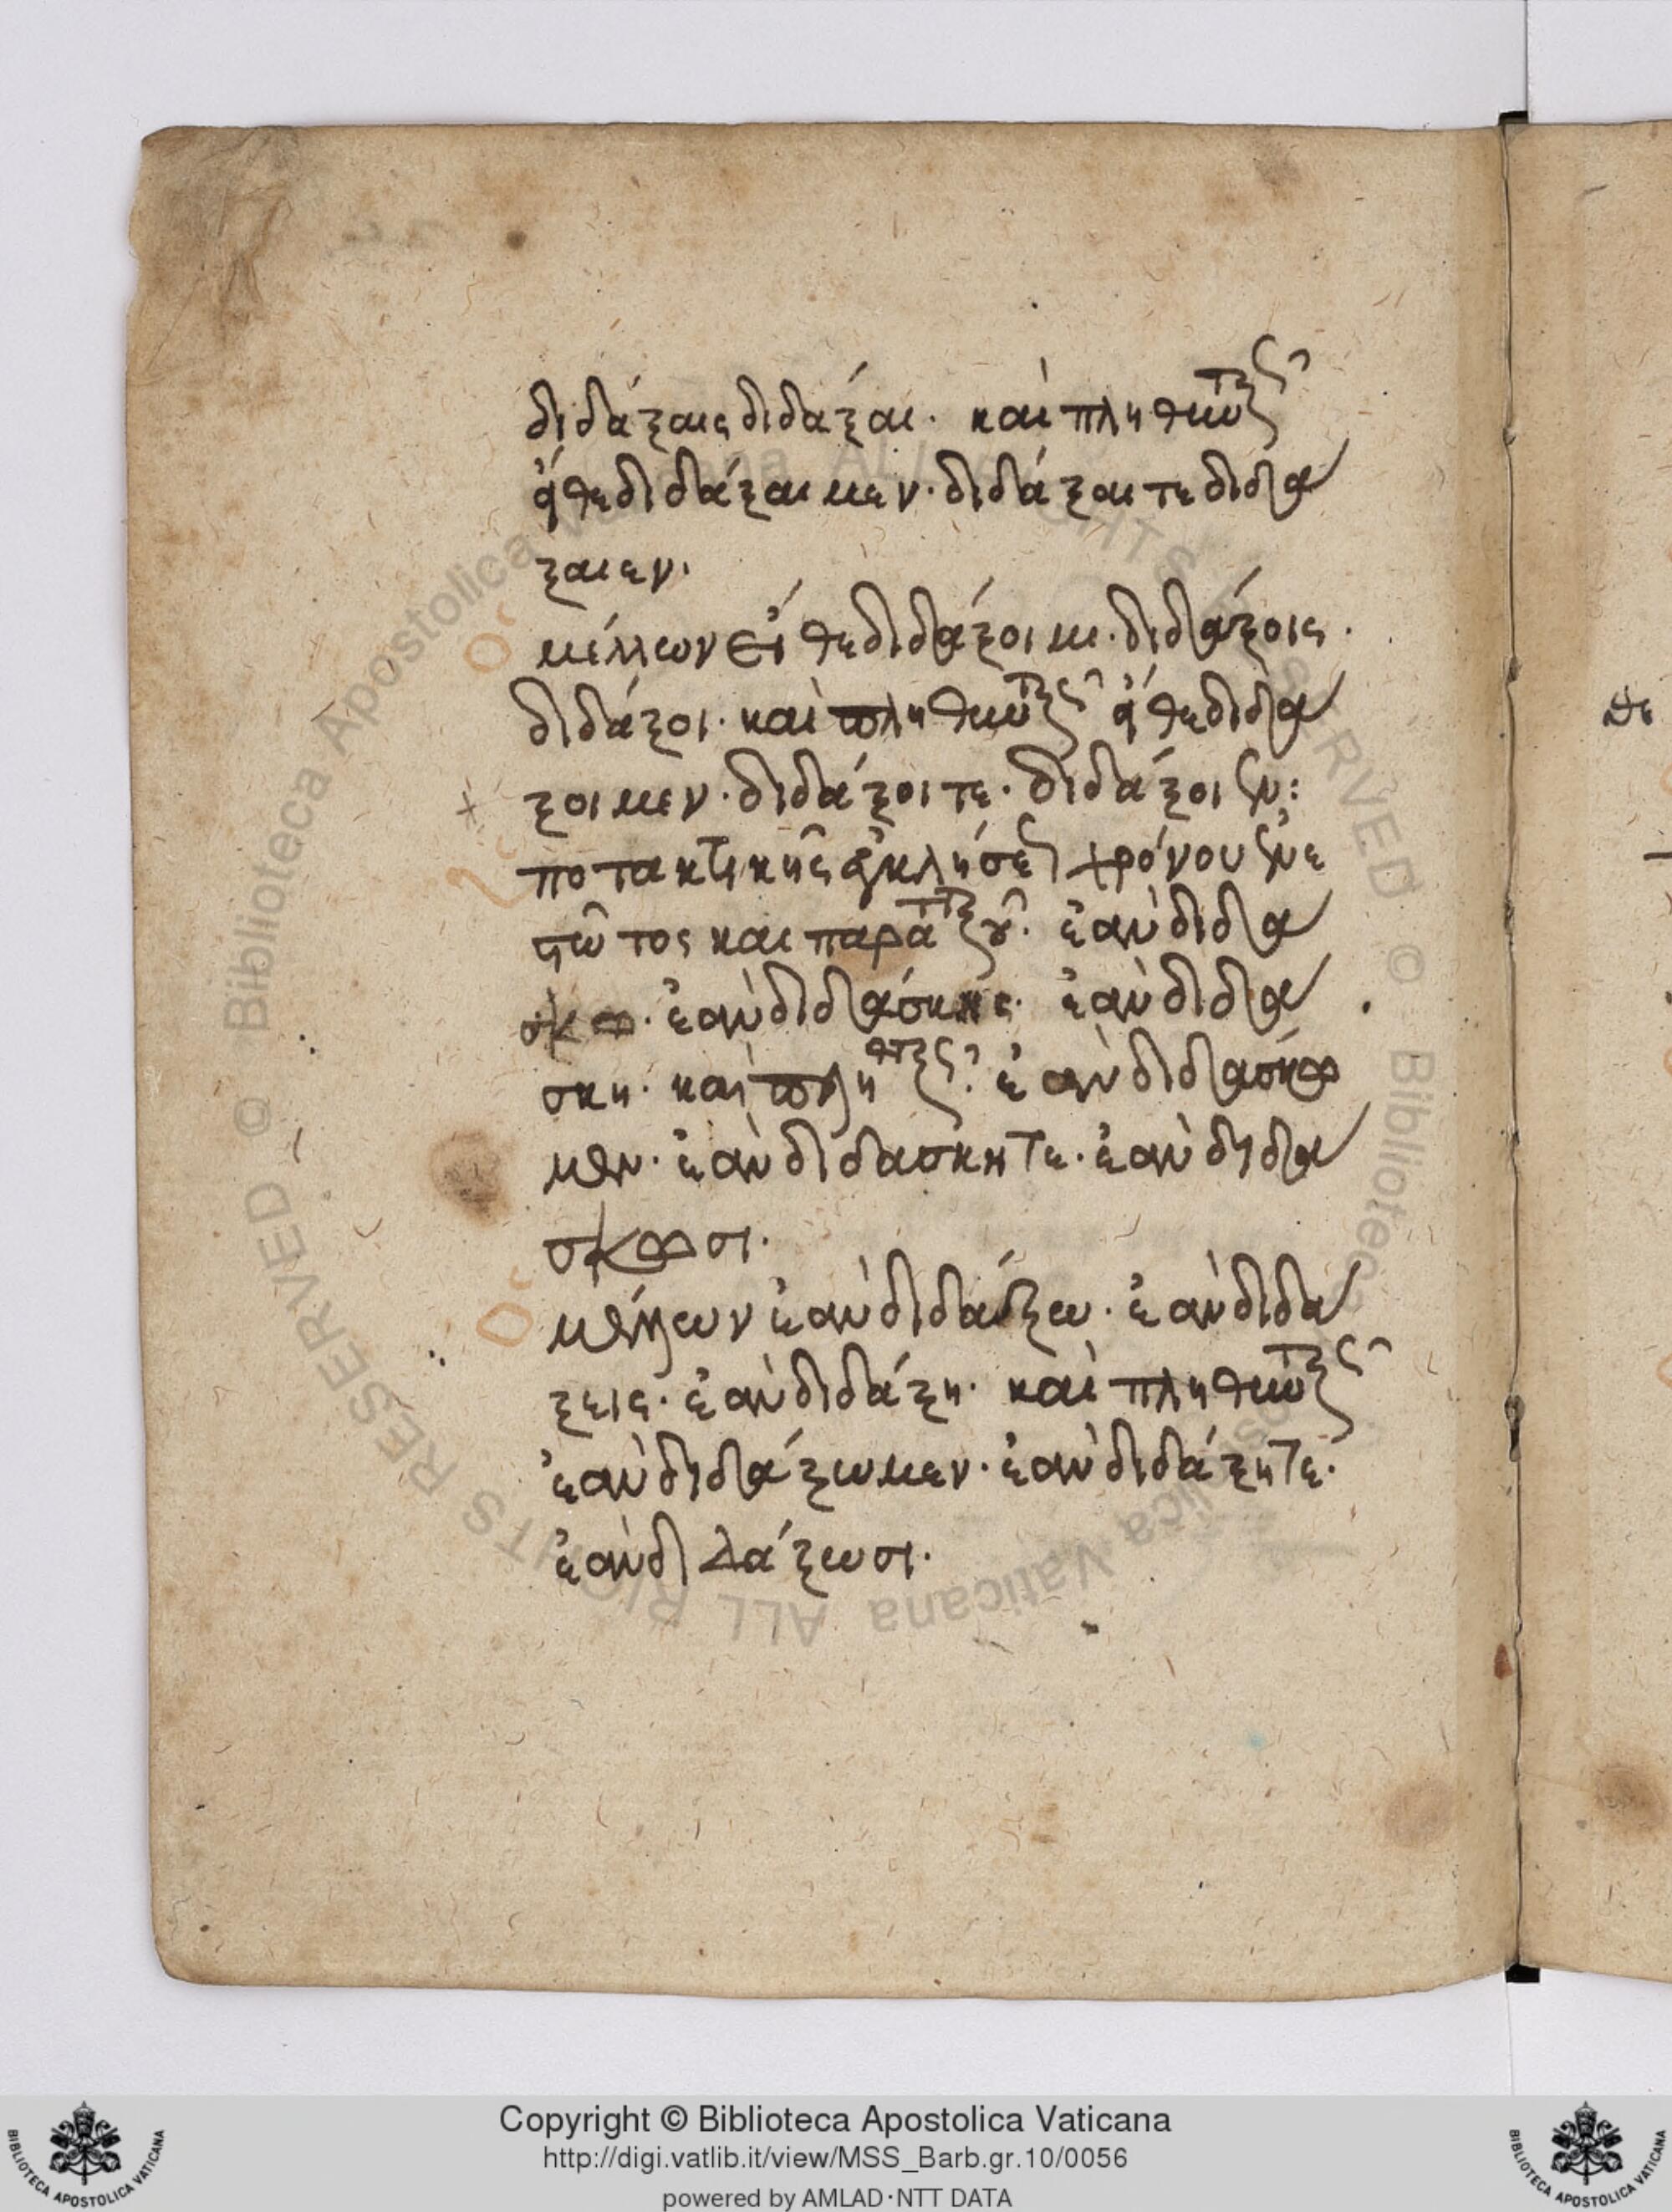 διδάξαις διδάξαι. καὶ πληθυντικῶς
εἴθε διδάξαιμεν. διδάξαιτε διδά
ξαιεν.
μέλλων εἴθε διδάξοιμι. διδάξοις.
διδάξοι. καὶ πληθυντικῶς εἴθε διδά
ξοιμεν. διδάξοιτε. διδάξοιεν:
ποτακτικῆς ἐγκλήσεως χρόνου ἐνε
στῶτος καὶ παρατατικοῦ. ἐὰν διδά
σκω. ἐὰν διδάσκης. ἐὰν διδά
σκη. καὶ πληθυντικῶς. ἐὰν διδάσκω
μεν. ἐὰν διδασκητε. ἐὰν διδα
σκωσι.
μέλλων ἐὰν διδάξω. ἐὰν διδα
ξεις. ἐὰν διδάξη. καὶ πληθυντικῶς
ἐὰν διδάξωμεν. ἐὰν διδάξητε.
ἐὰν διδάξωσι.
Copyright © Biblioteca Apostolica Vaticana
http://digi.vatlib.it/view/MSS_Barb.gr.10/0056
powered by AMLAD·NTT DATA